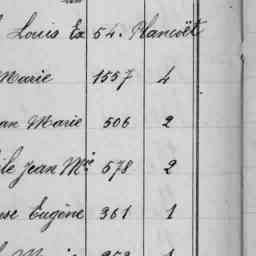 Louis Ex 54. Plancoët
Marie 1557 4
an Marie 506 2
le Jean Mie 578 2
se Eugène 361 1